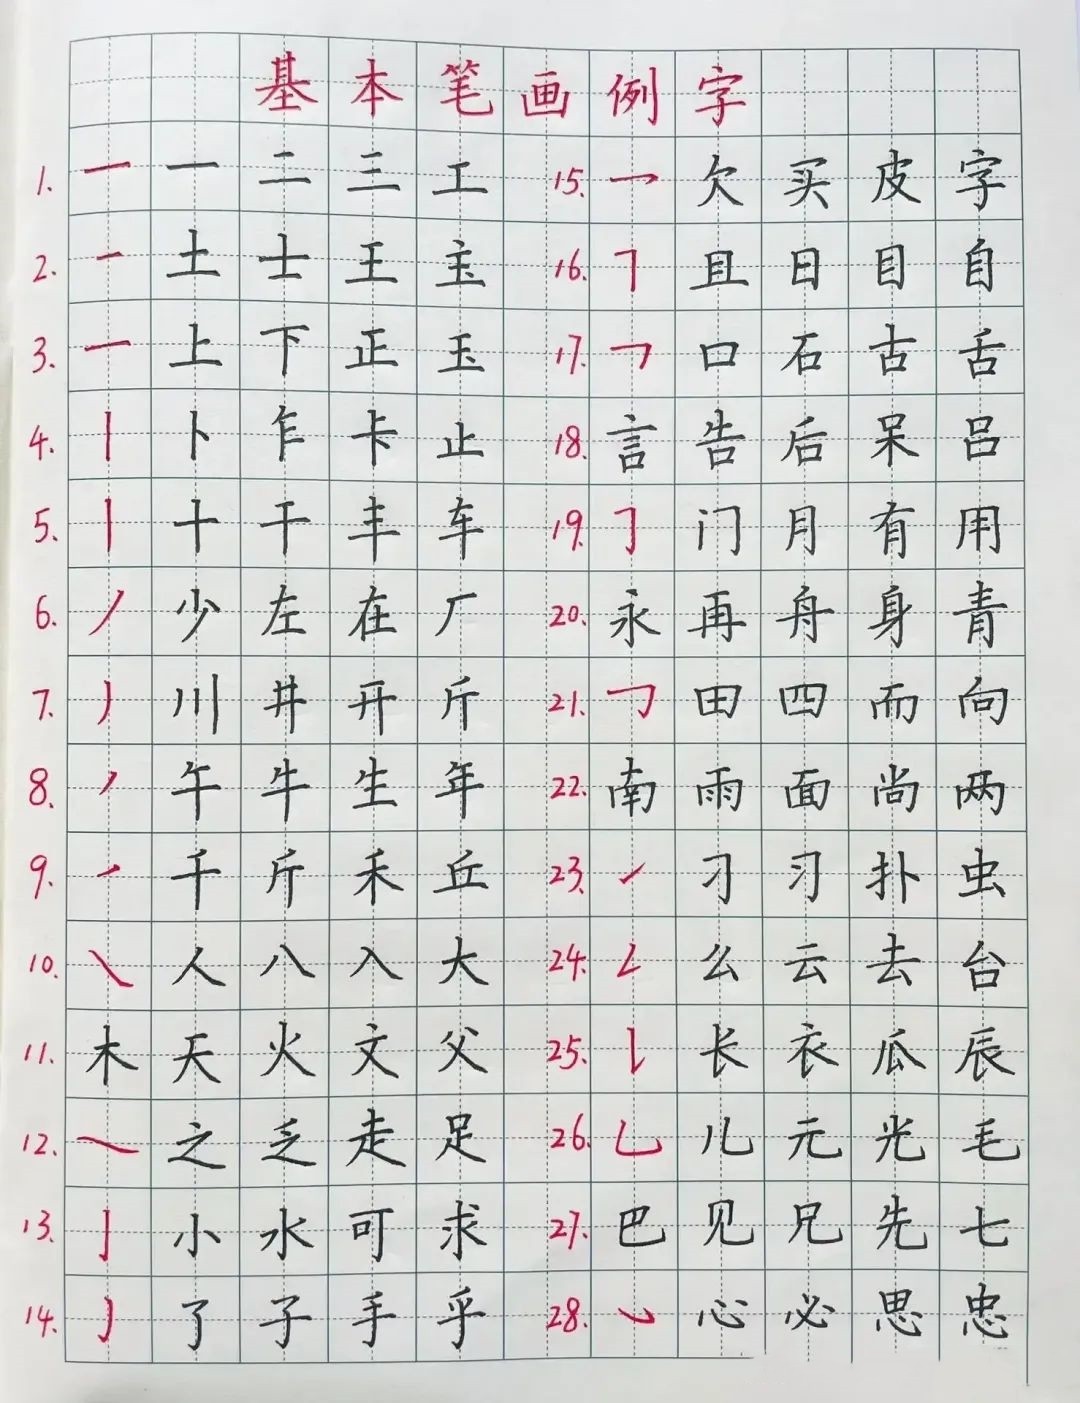 基本笔画例字
1. 一 一 二 三 工
2. 一 土 士 王 主
3. 一 上 下 正 玉
4. 丨 卜 乍 卡 止
5. 丨 十 干 丰 车
6. 丿 少 左 在 厂
7. 丿 川 井 开 斤
8. 丿 午 牛 生 年
9. 丿 千 斤 禾 丘
10. ㇏ 人 八 入 大
11. 木 天 火 文 父
12. ㇏ 之 乏 走 足
13. 亅 小 水 可 求
14. 亅 了 子 手 乎
15. 乛 欠 买 皮 字
16. ㇕ 且 日 目 自
17. ㇕ 口 石 古 舌
18. 言 告 后 呆 吕
19. ㇆ 门 月 有 用
20. 永 再 舟 身 青
21. ㇆ 田 四 而 向
22. 南 雨 面 尚 两
23. ㇀ 刁 习 扑 虫
24. ㇜ 么 云 去 台
25. ㇙ 长 衣 瓜 辰
26. 乚 儿 元 光 毛
27. 巴 见 兄 先 七
28. ㇃ 心 必 思 忠